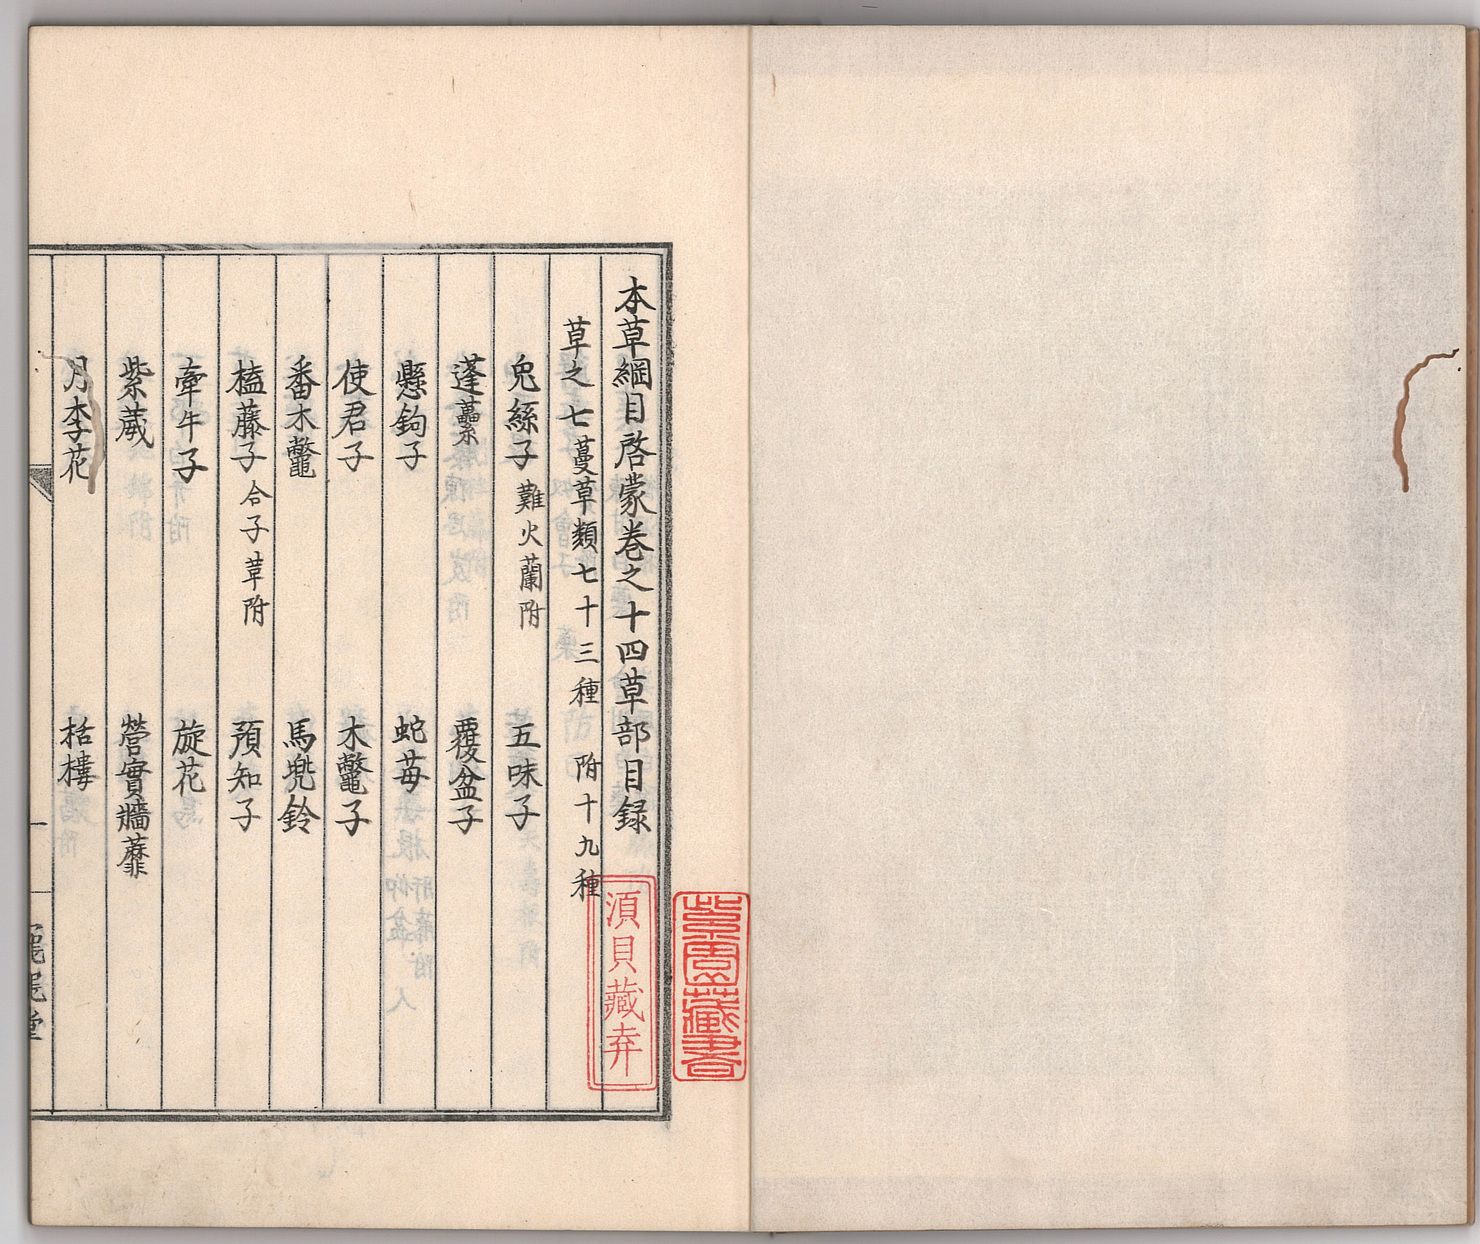 本草綱目啓蒙卷之十四草部目録
草之七蔓草類七十三種 附十九種
兔絲子 難火蘭附 五味子
蓬蘽 覆盆子
懸鉤子 蛇苺
使君子 木鼈子
番木鼈 馬兜鈴
榼藤子 合子草附 預知子
牽牛子 旋花
紫葳 營實牆蘼
月季花 栝樓
一
須貝藏弆
紫雲藏書